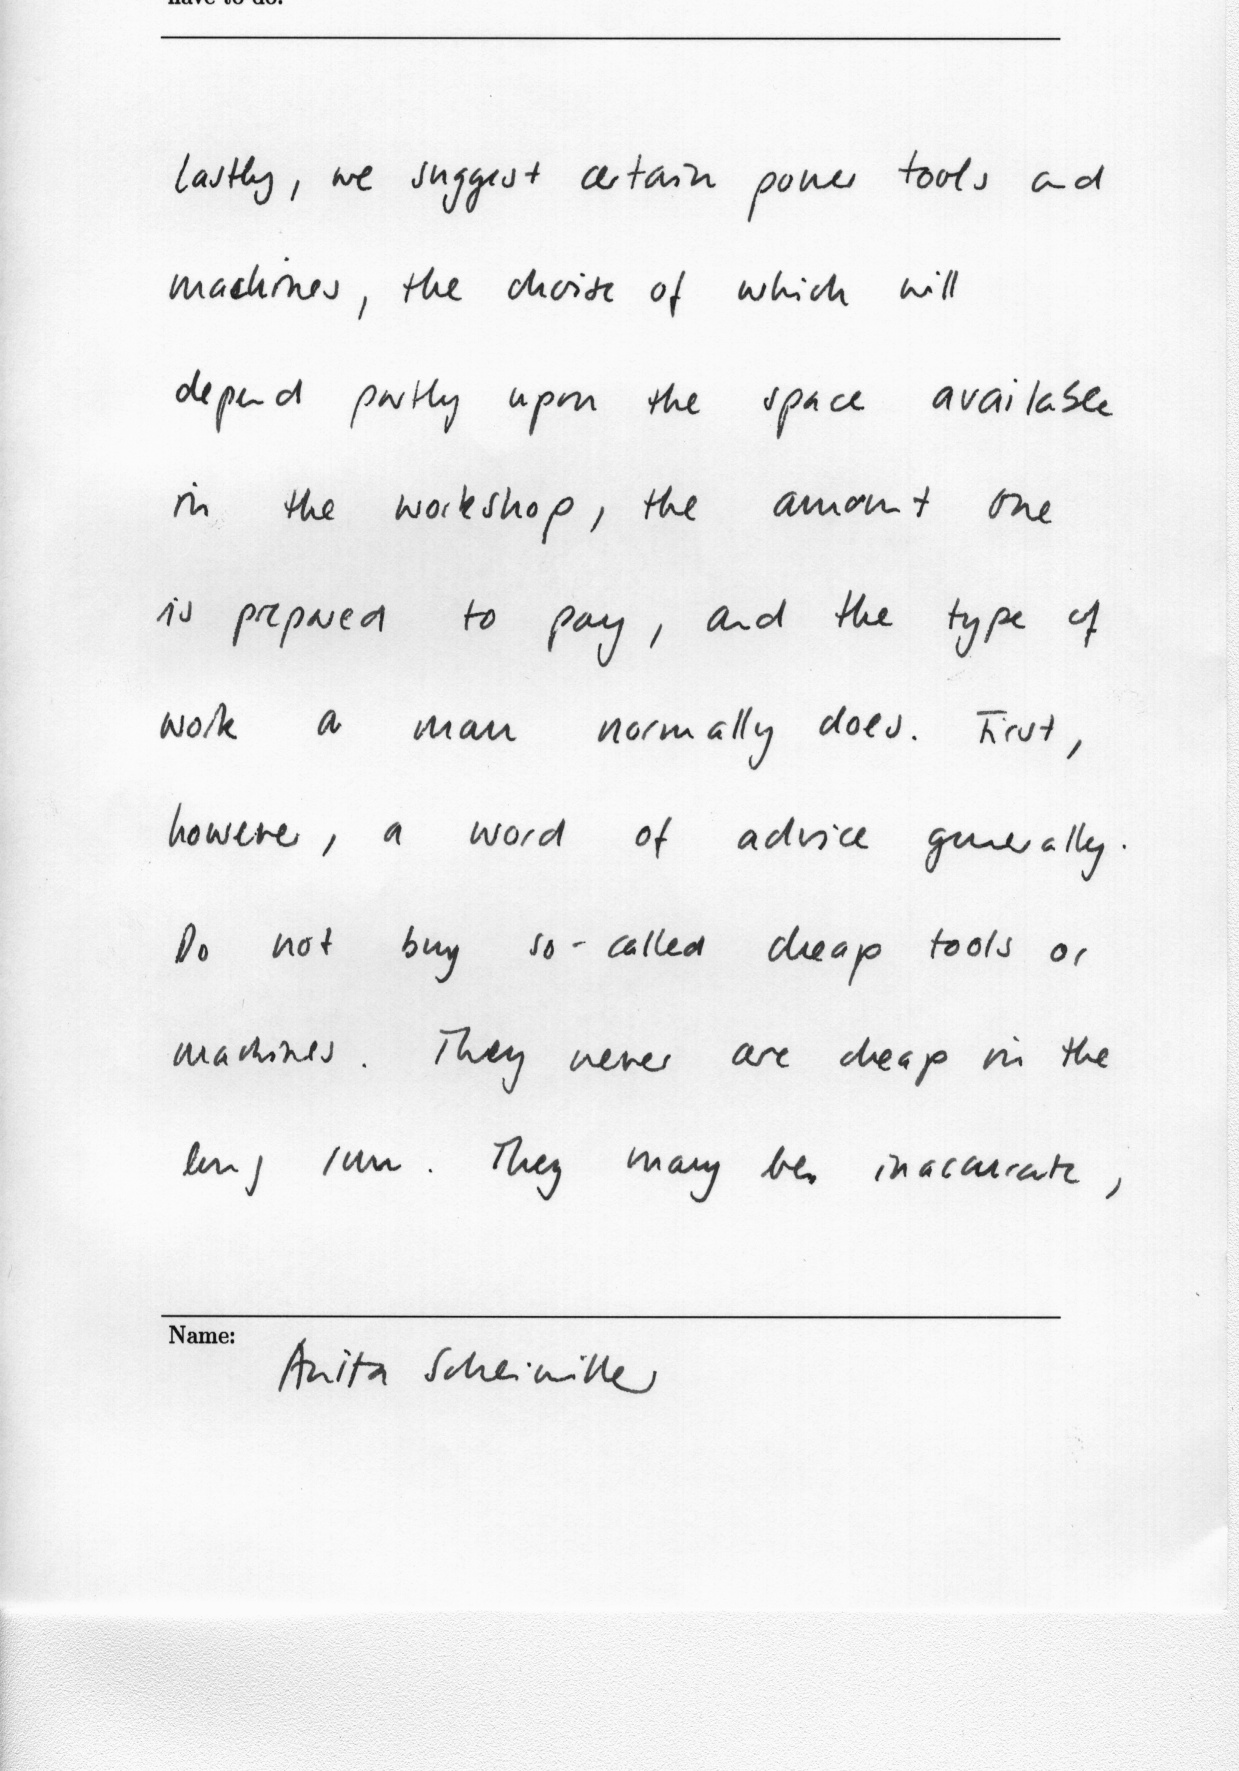 have to do.
Lastly, we suggest certain power tools and
machines, the choise of which will
depend partly upon the space available
in the workshop, the amount one
is prepared to pay, and the type of
work a man normally does. First,
however, a word of advice generally.
Do not buy so-called cheap tools or
machines. They never are cheap in the
long run. They may be inaccurate,
Name:
Anita